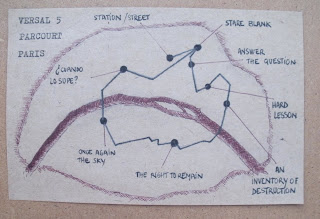 VERSAL 5
PARCOURT
PARIS
STATION/STREET
STARE BLANK
ANSWER
THE QUESTION
¿CUANDO
LO SUPE?
HARD
LESSON
ONCE AGAIN
THE SKY
THE RIGHT TO REMAIN
AN
INVENTORY OF
DESTRUCTION